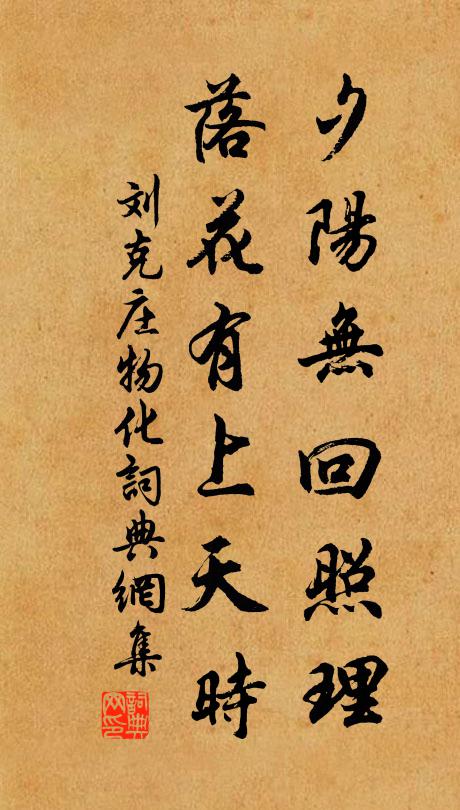 夕陽無回照理
落花有上天時
刘克庄物化詞典網集
詞典网印